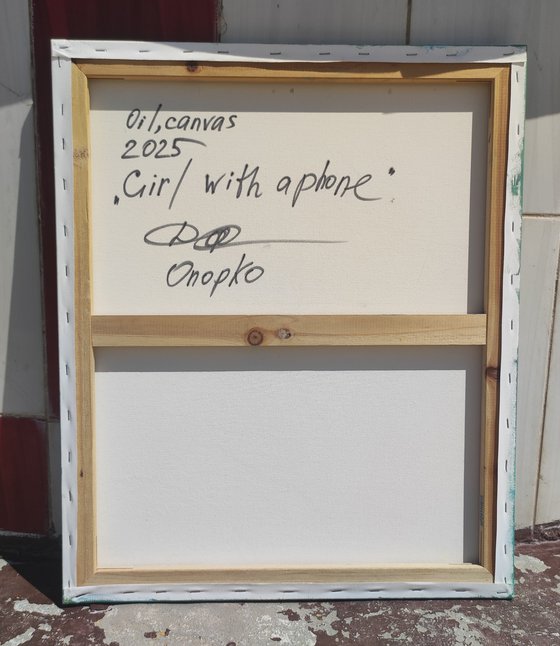 Oil, canvas
2025
„Girl with a phone"
Onopko